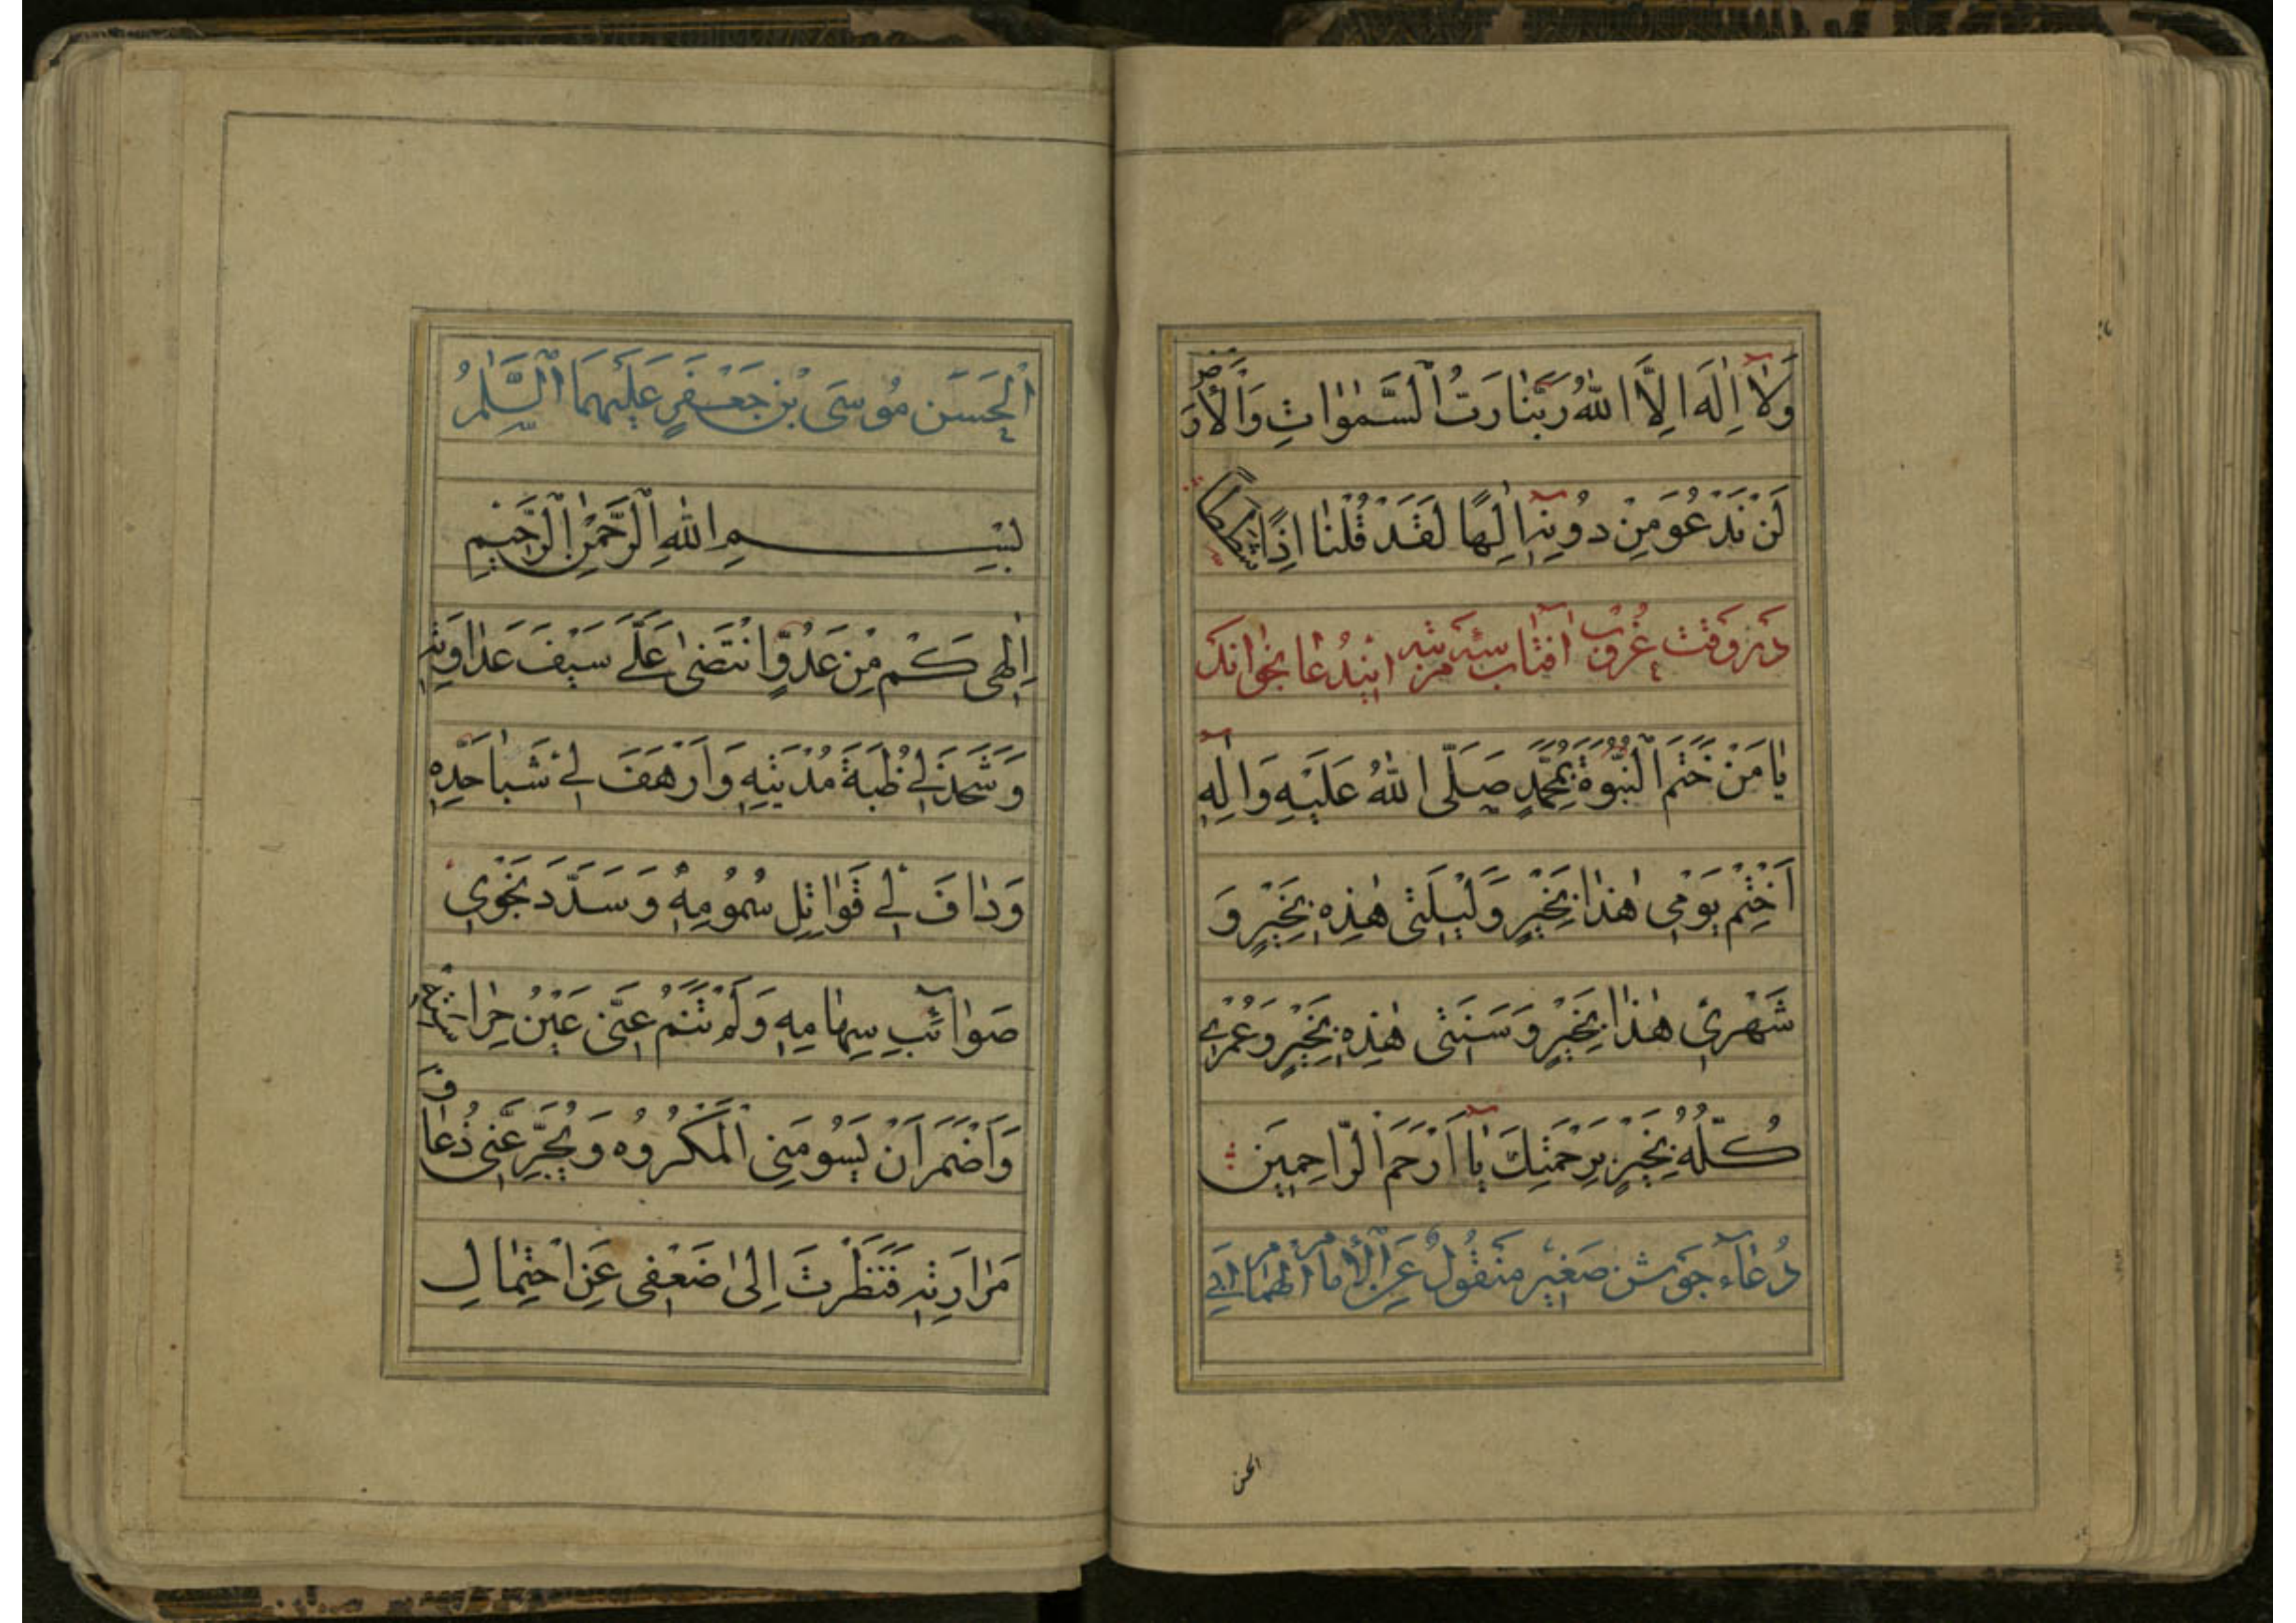 وَلَآ اِلٰهَ اِلَّا اللهُ رَبُّنَا رَبُّ السَّمٰوٰاتِ وَالْاَرْضِ
لَنْ نَدْعُوَ مِنْ دُونِهِ اِلٰهًا لَقَدْ قُلْنٰا اِذًا شَطَطًا
در وقت غروب آفتاب سه مرتبه این دعا بخواند
يٰا مَنْ خَتَمَ النُّبُوَّةَ بِمُحَمَّدٍ صَلَّى اللهُ عَلَيْهِ وَاٰلِهِ
اَخْتِمْ يَوْمِي هٰذٰا بِخَيْرٍ وَلَيْلَتِي هٰذِهِ بِخَيْرٍ وَ
شَهْرِي هٰذٰا بِخَيْرٍ وَسَنَتِي هٰذِهِ بِخَيْرٍ وَعُمْرِي
كُلَّهُ بِخَيْرٍ بِرَحْمَتِكَ يٰآ اَرْحَمَ الرّٰاحِمِينَ
دُعٰآء جوشن صغیر مَنْقُولٌ عَنِ الْاِمٰامِ الْهُمٰامِ اَبِي
الحسن
اَلْحَسَنِ مُوسَى بْنِ جَعْفَرٍ عَلَيْهِمَا السَّلٰمُ
بِسْمِ اللهِ الرَّحْمٰنِ الرَّحِيمِ
اِلٰهِي كَمْ مِنْ عَدُوٍّ انْتَضىٰ عَلَيَّ سَيْفَ عَدٰاوَتِهِ
وَشَحَذَ لِي ظُبَةَ مُدْيَتِهِ وَاَرْهَفَ لِي شَبٰا حَدِّهِ
وَدٰافَ لِي قَوٰاتِلَ سُمُومِهِ وَسَدَّدَ نَحْوِي
صَوٰائِبَ سِهٰامِهِ وَلَمْ تَنَمْ عَنِّي عَيْنُ حِرٰاسَتِهِ
وَاَضْمَرَ اَنْ يَسُومَنِي الْمَكْرُوهَ وَيُجَرِّعَنِي ذُعٰافَ
مَرٰارَتِهِ فَنَظَرْتَ اِلىٰ ضَعْفِي عَنِ احْتِمٰالِ